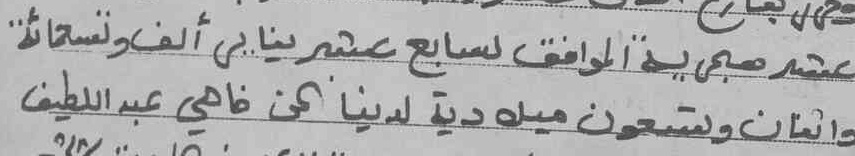 عشر هجرية" الموافق لسابع عشر يناير ألف وتسعمائة"
واثنان وتسعون ميلادية لدينا نحن فاهي عبد اللطيف